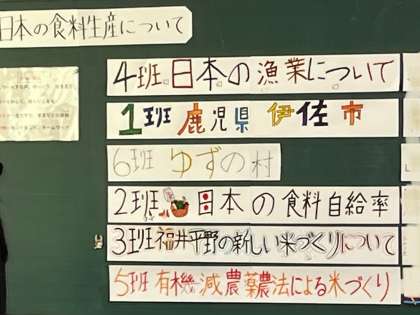 日本の食料生産について
4班 日本の漁業について
1班 鹿児県 伊佐市
6班 ゆずの村
2班 日本の食料自給率
3班 福井平野の新しい米づくりについて
5班 有機減農薬農法による米づくり